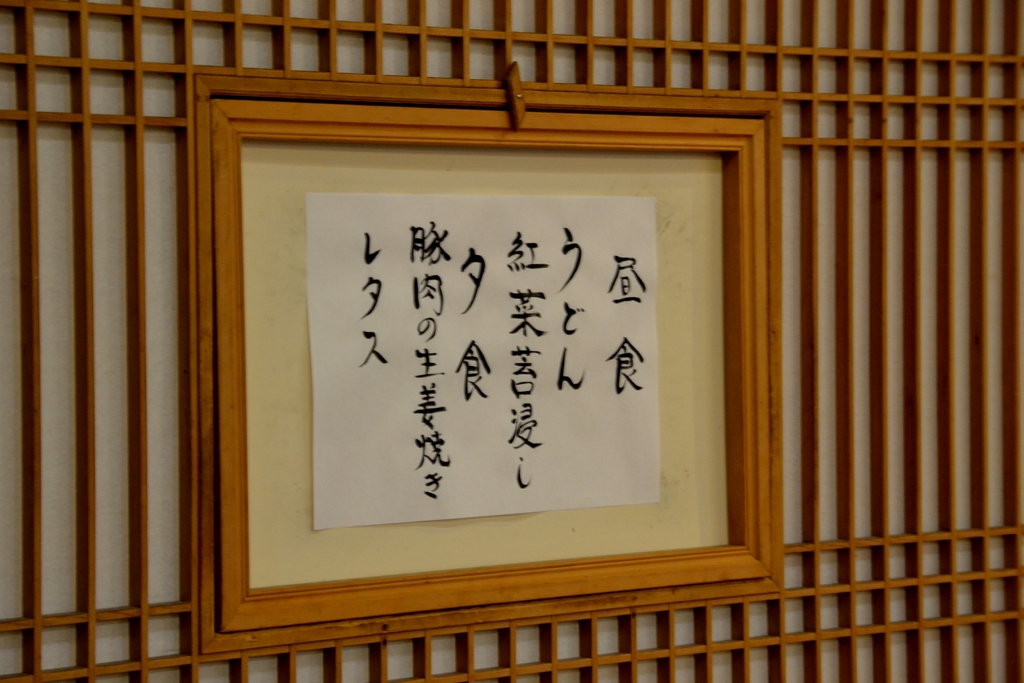 昼食
うどん
紅菜苔浸し
夕食
豚肉の生姜焼き
レタス